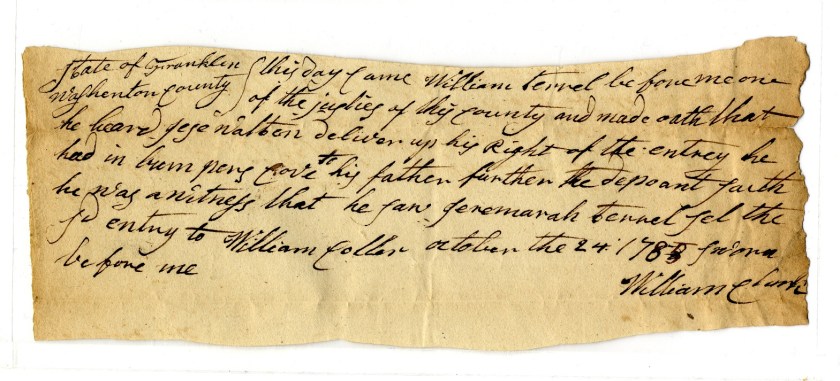 State of Franklin this day Came William terrel before me one
Washenton County of the justies of this County and made oath that
he heard Jese walten deliver up his Right of the entrey he
had in bum pers Cove to his father further the depoant saith
he was a witness that he saw Jeremarah terrel sel the
sd entry to William Coller october the 24 1785 sworn
before me
William Clark